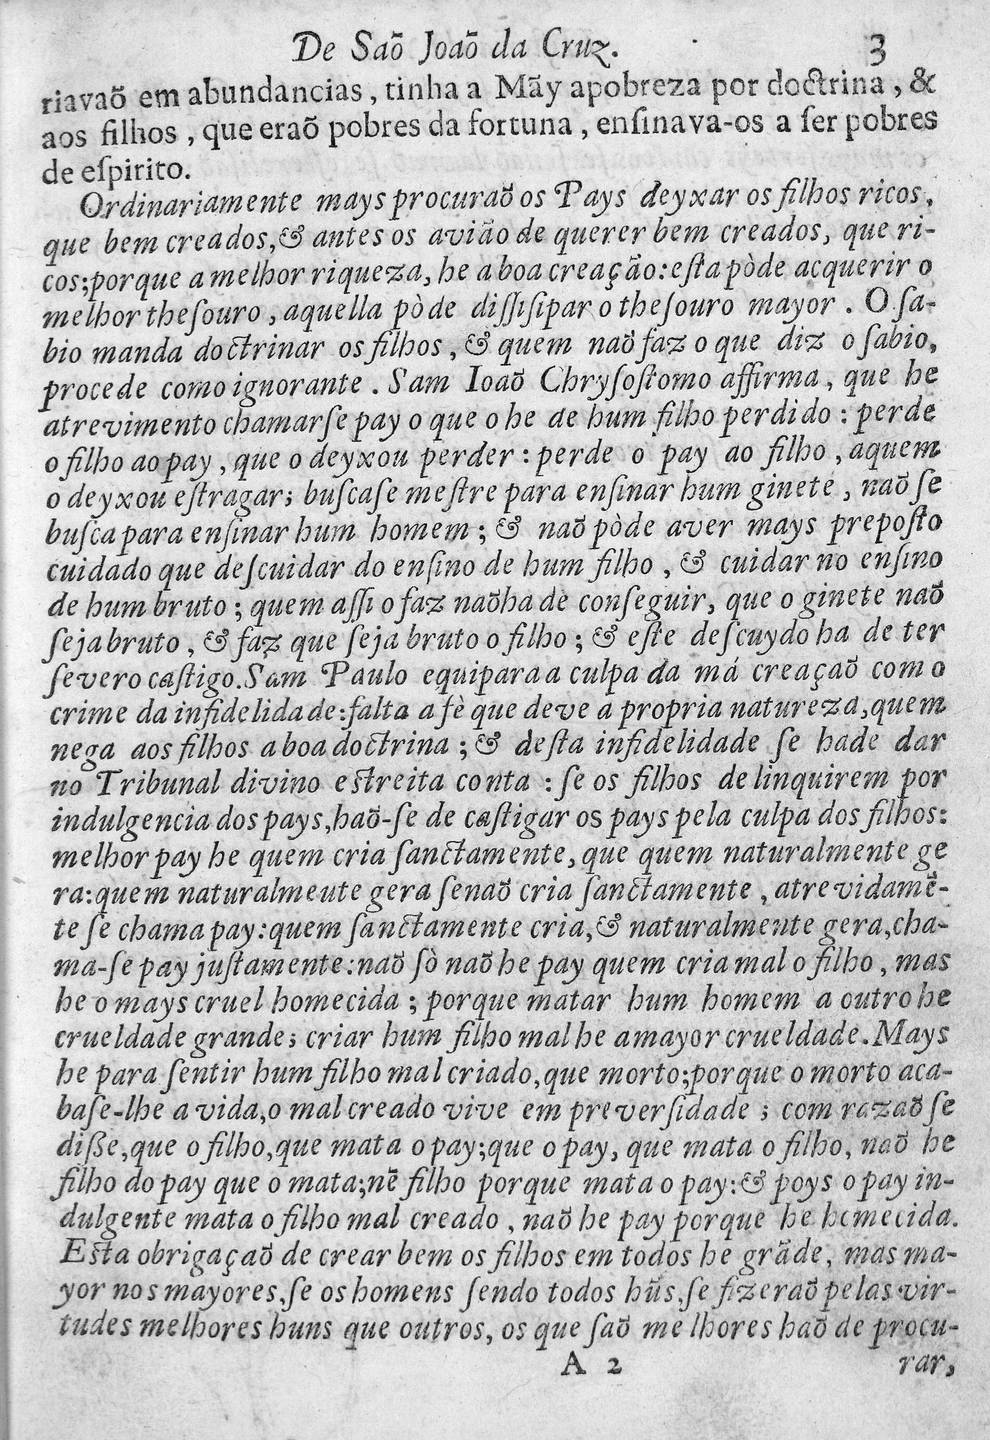 De Saõ Joaõ da Cruz. 3
riavaõ em abundancias, tinha a Mãy apobreza por doctrina, &
aos filhos, que eraõ pobres da fortuna, enſinava-os a ſer pobres
de eſpirito.
Ordinariamente mays procuraõ os Pays deyxar os filhos ricos,
que bem creados, & antes os avião de querer bem creados, que ri-
cos; porque a melhor riqueza, he a boa creação: eſta pòde acquerir o
melhor theſouro, aquella pòde diſſiſipar o theſouro mayor. O ſa-
bio manda doctrinar os filhos, & quem naõ faz o que diz o ſabio,
procede como ignorante. Sam Ioaõ Chryſoſtomo affirma, que he
atrevimento chamarſe pay o que o he de hum filho perdido: perde
o filho ao pay, que o deyxou perder: perde o pay ao filho, aquem
o deyxou eſtragar; buſcaſe meſtre para enſinar hum ginete, naõ ſe
buſca para enſinar hum homem; & naõ pòde aver mays prepoſto
cuidado que deſcuidar do enſino de hum filho, & cuidar no enſino
de hum bruto; quem aſſi o faz naõ ha de conſeguir, que o ginete naõ
ſeja bruto, & faz que ſeja bruto o filho; & eſte deſcuydo ha de ter
ſevero caſtigo. Sam Paulo equipara a culpa da má creaçaõ com o
crime da infidelidade: falta a fè que deve a propria natureza, quem
nega aos filhos a boa doctrina; & deſta infidelidade ſe hade dar
no Tribunal divino eſtreita conta: ſe os filhos delinquirem por
indulgencia dos pays, haõ-ſe de caſtigar os pays pela culpa dos filhos:
melhor pay he quem cria ſanctamente, que quem naturalmente ge
ra: quem naturalmeute gera ſenaõ cria ſanctamente, atrevidamẽ-
te ſe chama pay: quem ſanctamente cria, & naturalmente gera, cha-
ma-ſe pay juſtamente: naõ ſò naõ he pay quem cria mal o filho, mas
he o mays cruel homecida; porque matar hum homem a outro he
crueldade grande; criar hum filho mal he a mayor crueldade. Mays
he para ſentir hum filho mal criado, que morto; porque o morto aca-
baſe-lhe a vida, o mal creado vive em preverſidade; com razaõ ſe
diſſe, que o filho, que mata o pay; que o pay, que mata o filho, naõ he
filho do pay que o mata; nẽ filho porque mata o pay: & poys o pay in-
dulgente mata o filho mal creado, naõ he pay porque he homecida.
Eſta obrigaçaõ de crear bem os filhos em todos he grãde, mas ma-
yor nos mayores, ſe os homens ſendo todos hũs, ſe fizeraõ pelas vir-
tudes melhores huns que outros, os que ſaõ melhores haõ de procu-
A 2 rar,